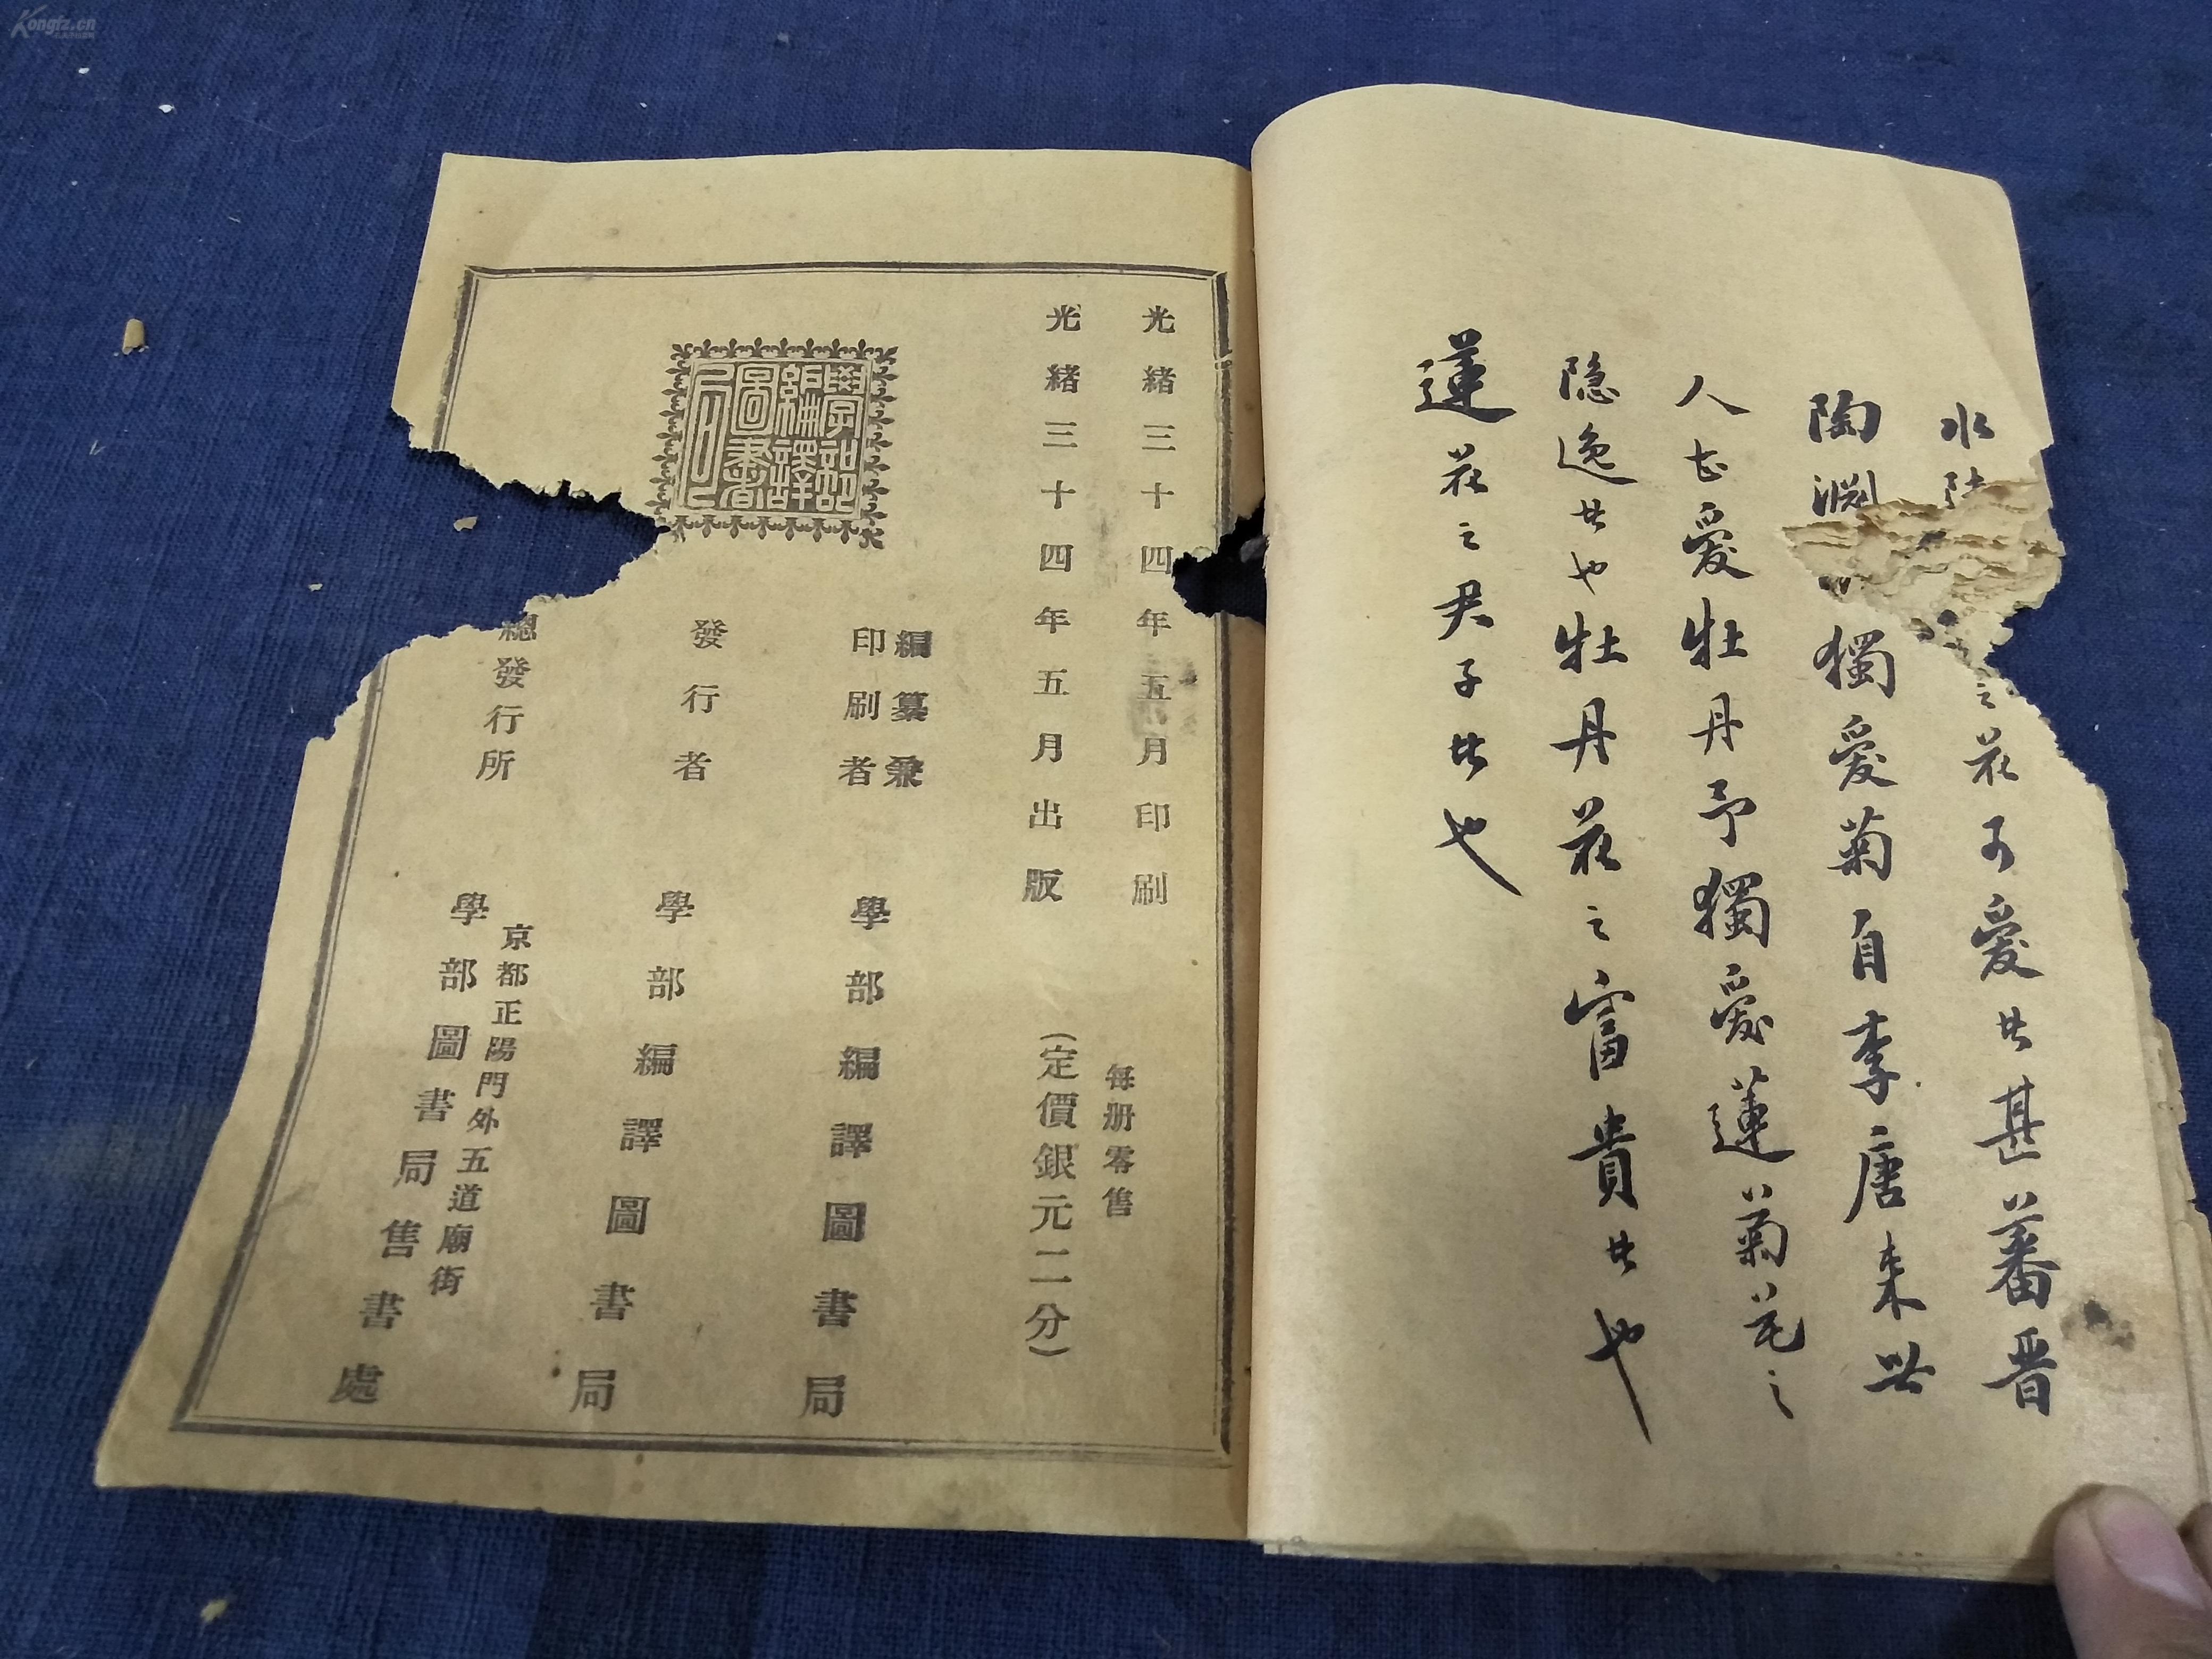 水之花可愛者甚蕃晋
陶淵獨愛菊自李唐来世
人甚愛牡丹予獨愛蓮菊花之
隐逸者也牡丹花之富貴者也
蓮花之君子者也
光緒三十四年五月印刷
光緒三十四年五月出版
每册零售
(定價銀元二分)
編纂兼
印刷者
學部編譯圖書局
發行者
學部編譯圖書局
學部
編譯
圖書
局
總發行所
京都正陽門外五道廟街
學部圖書局售書處
Kongfz.cn